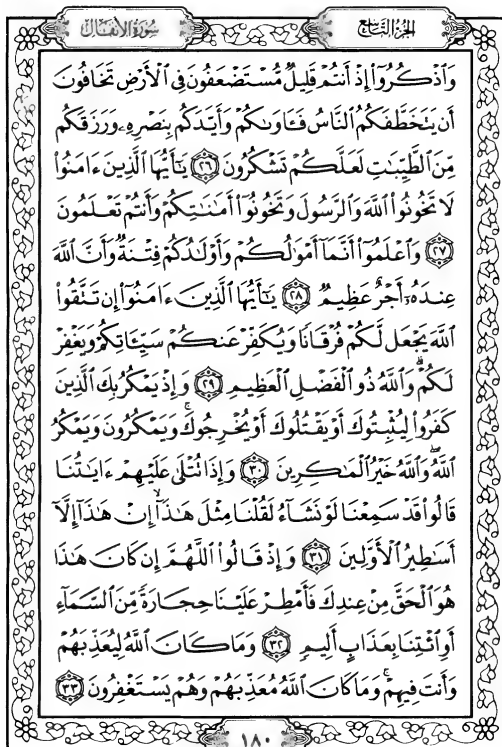 الجزء التاسع
سورة الأنفال
وَاذْكُرُوا إِذْ أَنتُمْ قَلِيلٌ مُّسْتَضْعَفُونَ فِى الْأَرْضِ تَخَافُونَ
أَن يَتَخَطَّفَكُمُ النَّاسُ فَـَٔاوَىٰكُمْ وَأَيَّدَكُم بِنَصْرِهِۦ وَرَزَقَكُم
مِّنَ الطَّيِّبَـٰتِ لَعَلَّكُمْ تَشْكُرُونَ ٢٦ يَـٰٓأَيُّهَا الَّذِينَ ءَامَنُوا
لَا تَخُونُوا اللَّهَ وَالرَّسُولَ وَتَخُونُوٓا أَمَـٰنَـٰتِكُمْ وَأَنتُمْ تَعْلَمُونَ
٢٧ وَاعْلَمُوٓا أَنَّمَآ أَمْوَٰلُكُمْ وَأَوْلَـٰدُكُمْ فِتْنَةٌ وَأَنَّ اللَّهَ
عِندَهُۥٓ أَجْرٌ عَظِيمٌ ٢٨ يَـٰٓأَيُّهَا الَّذِينَ ءَامَنُوٓا إِن تَتَّقُوا
اللَّهَ يَجْعَل لَّكُمْ فُرْقَانًا وَيُكَفِّرْ عَنكُمْ سَيِّـَٔاتِكُمْ وَيَغْفِرْ
لَكُمْ ۗ وَاللَّهُ ذُو الْفَضْلِ الْعَظِيمِ ٢٩ وَإِذْ يَمْكُرُ بِكَ الَّذِينَ
كَفَرُوا لِيُثْبِتُوكَ أَوْ يَقْتُلُوكَ أَوْ يُخْرِجُوكَ ۚ وَيَمْكُرُونَ وَيَمْكُرُ
اللَّهُ ۖ وَاللَّهُ خَيْرُ الْمَـٰكِرِينَ ٣٠ وَإِذَا تُتْلَىٰ عَلَيْهِمْ ءَايَـٰتُنَا
قَالُوا قَدْ سَمِعْنَا لَوْ نَشَآءُ لَقُلْنَا مِثْلَ هَـٰذَآ ۙ إِنْ هَـٰذَآ إِلَّآ
أَسَـٰطِيرُ الْأَوَّلِينَ ٣١ وَإِذْ قَالُوا اللَّهُمَّ إِن كَانَ هَـٰذَا
هُوَ الْحَقَّ مِنْ عِندِكَ فَأَمْطِرْ عَلَيْنَا حِجَارَةً مِّنَ السَّمَآءِ
أَوِ ائْتِنَا بِعَذَابٍ أَلِيمٍ ٣٢ وَمَا كَانَ اللَّهُ لِيُعَذِّبَهُمْ
وَأَنتَ فِيهِمْ ۚ وَمَا كَانَ اللَّهُ مُعَذِّبَهُمْ وَهُمْ يَسْتَغْفِرُونَ ٣٣
١٨٠